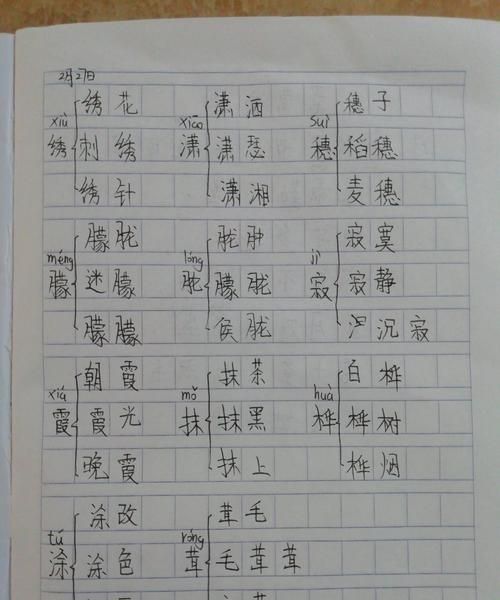 2月27日
绣花 潇洒 穗子
xiù xiāo suì
绣 刺绣 潇 潇瑟 穗 稻穗
绣针 潇湘 麦穗
朦胧 胧肿 寂寞
méng lóng jì
朦 迷朦 胧 朦胧 寂 寂静
朦朦 侯胧 沉寂
朝霞 抹茶 白桦
xiá mǒ huà
霞 霞光 抹 抹黑 桦 桦树
晚霞 抹上 桦烟
涂改 茸毛
tú róng
涂 涂色 茸 毛茸茸